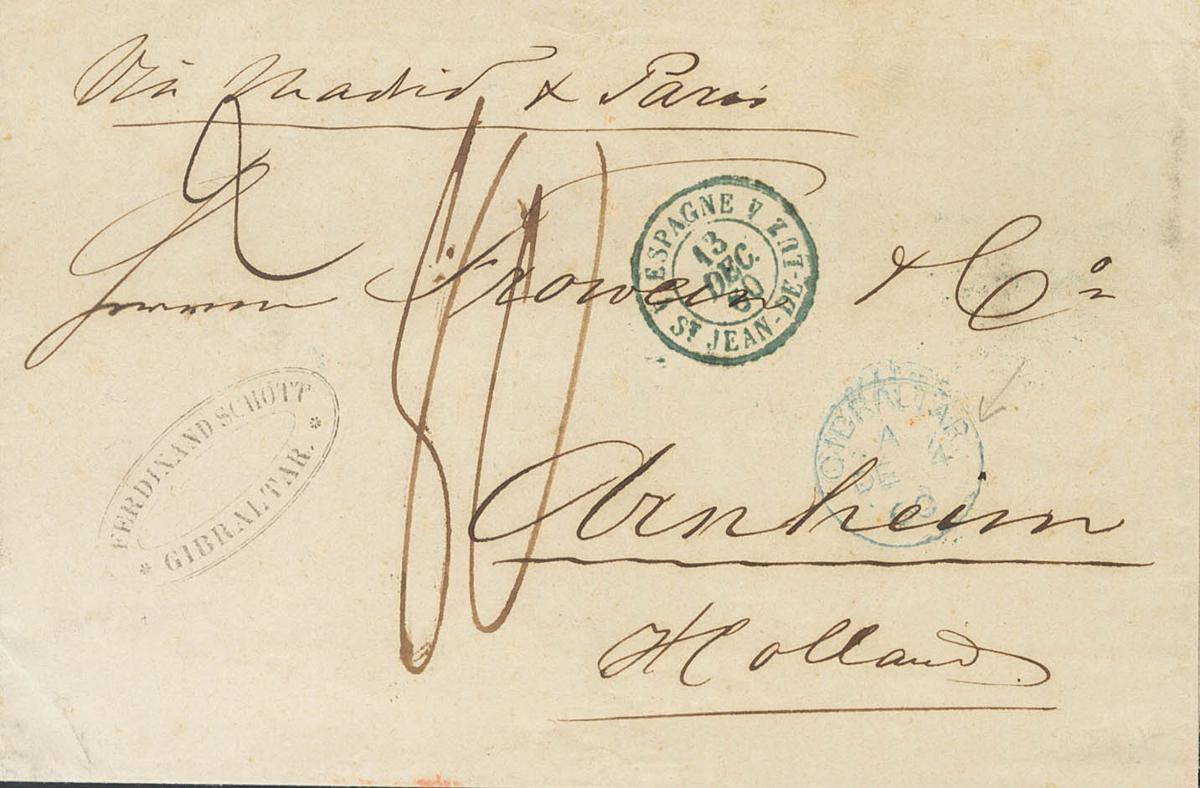 Via Madrid & Paris
2
80
Herren Frowein & Co
ESPAGNE
13
DEC.
60
ST JEAN-DE-LUZ
FERDINAND SCHOTT
* GIBRALTAR. *
GIBRALTAR
A
DE 4
60
Arnheim
Holland